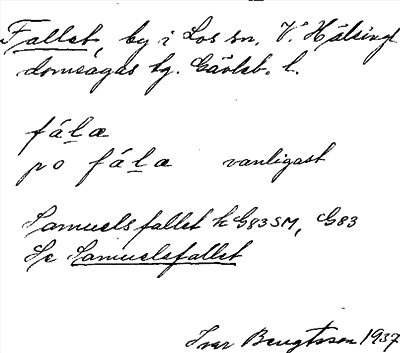 Fallet, by i Los sn. V. Hälsingl.
domsagas tg. Gävleb. l.
fála̲e
po fála̲e vanligast
Samuelsfallet k G83SM, G83
Se Samuelsfallet
Ivar Bengtsson 1937